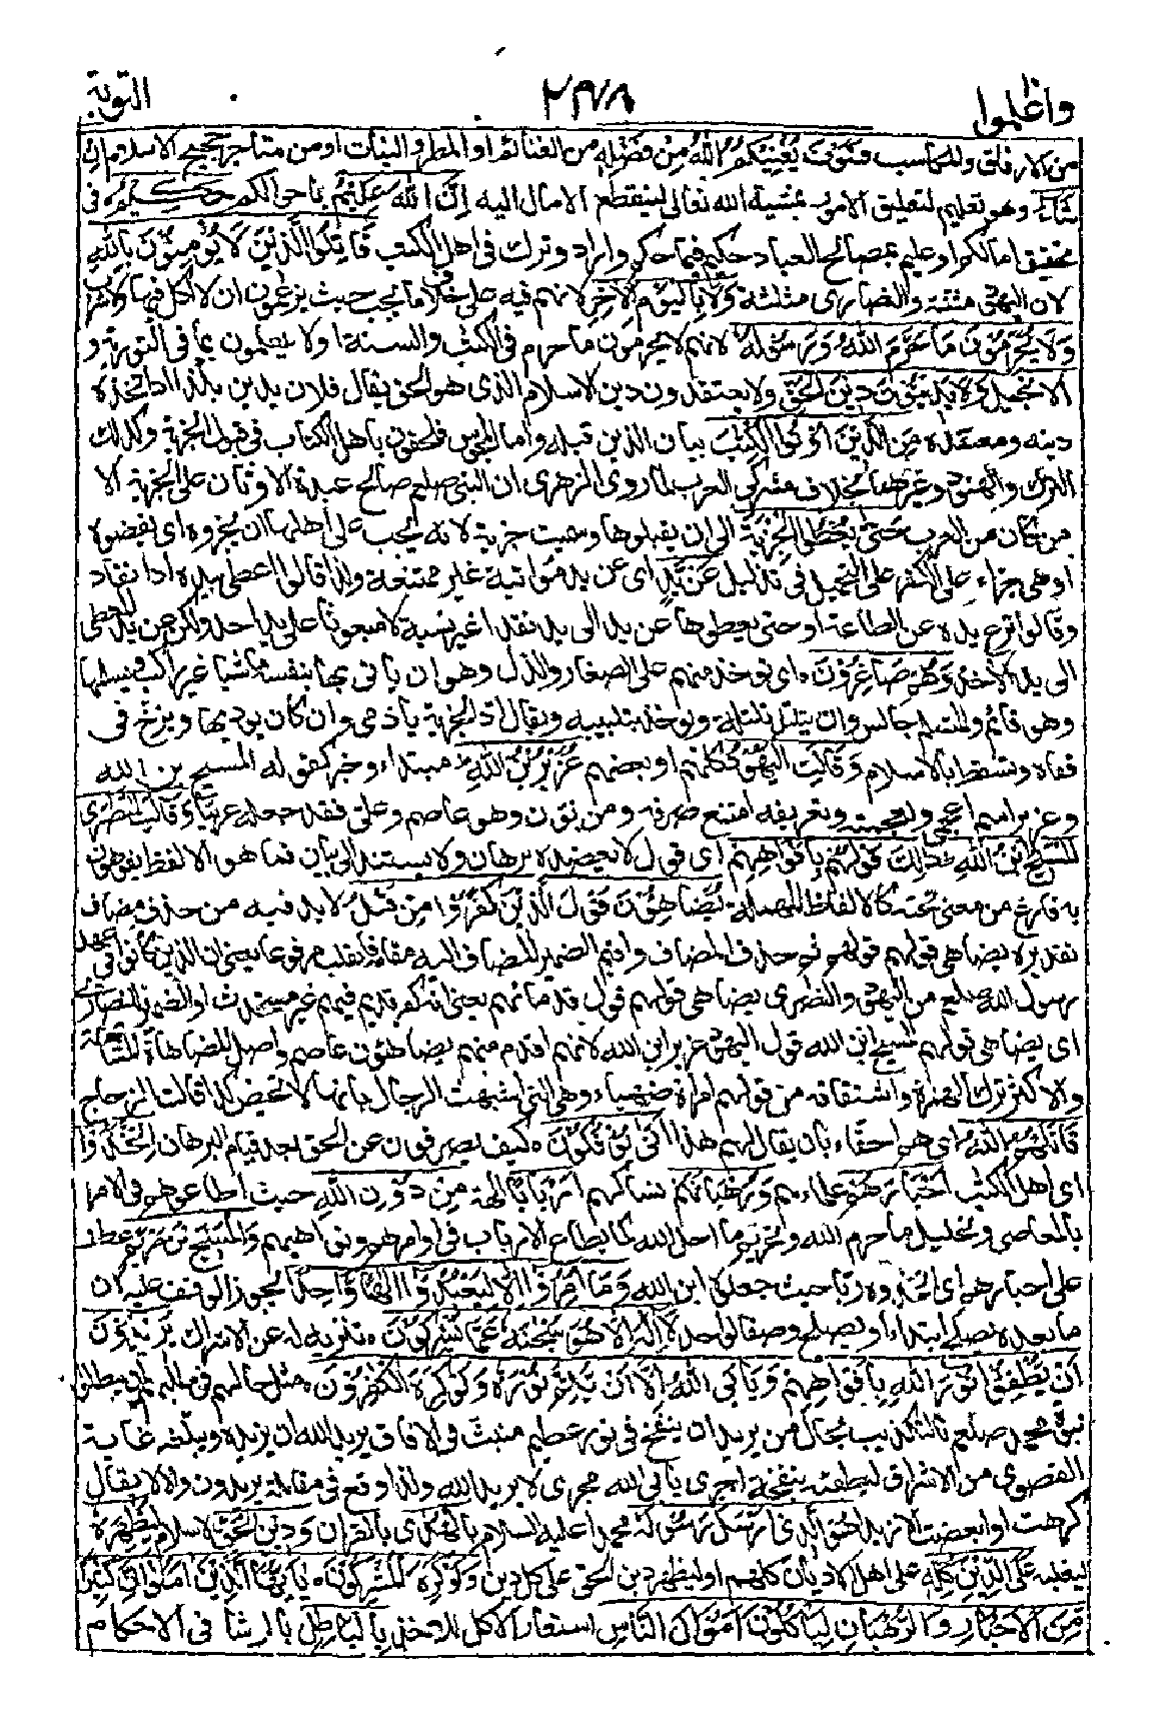 واعلموا ٢٧٨ التوبة
من الارفاق والمكاسب فسوف يغنيكم الله من فضله من الغنائم او المطر والنبات او من متاجر حجيج الاسلام ان
شاء وهو تعليم لتعليق الامور بمشية الله تعالى لينقطع الامال اليه ان الله عليم باحوالكم حكيم في
تحقيق امالكم او عليم بمصالح العباد حكيم فيما حكم واراد ونزل في اهل الكتب قاتلوا الذين لا يؤمنون بالله
لان اليهود مثنية والنصارى مثلثة ولا باليوم الاخر لانهم فيه على خلاف ما يجب حيث يزعمون ان لا اكل فيها ولا شرب
ولا يحرمون ما حرم الله ورسوله لانهم لا يحرمون ما حرم في الكتب والسنة او لا يعملون بما في التورية و
الانجيل ولا يدينون دين الحق ولا يعتقدون دين الاسلام الذي هو الحق يقال فلان يدين بكذا اذا اتخذه
دينه ومعتقده من الذين اوتوا الكتب بيان الذين قبله واما المجوس فملحقون باهل الكتاب في قبول الجزية وكذلك
الترك والهنود وغيرهما بخلاف مشركي العرب لما روى الزهري ان النبي صلعم صالح عبدة الاوثان على الجزية الا
من كان من العرب حتى يعطوا الجزية الى ان يقبلوها وسميت جزية لانه يجب على اهلها ان يجزوه اي يقضوه
او هي جزاء على الكفر على التحميل في تذليل عن يد اي عن يد مواتية غير ممتنعة ولذا قالوا اعطى بيده اذا انقاد
وقالوا نزع يده عن الطاعة او حتى يعطوها عن يد الى يد نقدا غير نسية لا مبعوثا على يد احد ولكن عن يد المعطي
الى يد الاخذ وهم صاغرون اي تؤخذ منهم على الصغار والذل وهو ان ياتي بها بنفسه ماشيا غير راكب ويسلمها
وهو قائم والمتسلم جالس وان يتلتل تلتلة ويؤخذ بتلبيبه ويقال اد الجزية يا ذمي وان كان يؤديها ويزخ في
قفاه وتسقط بالاسلام وقالت اليهود كلهم او بعضهم عزير ابن الله مبتداء وخبر كقوله المسيح بن الله
وعزير اسم اعجمي ولعجمته وتعريفه امتنع صرفه ومن نون وهو عاصم وعلي فقد جعله عربيا وقالت النصرى
المسيح ابن الله ذلك قولهم بافواههم اي قول لا يعضده برهان ولا يستند الى بيان فما هو الا لفظ يفوهون
به فارغ من معنى تحته كالالفاظ المهملة يضاهئون قول الذين كفروا من قبل لا بد فيه من حذف مضاف
تقديره يضاهي قولهم قولهم ثم حذف المضاف واقيم الضمير المضاف اليه مقامه فانقلب مرفوعا يعني ان الذين كانوا في عهد
رسول الله صلعم من اليهود والنصرى يضاهي قولهم قول قدمائهم يعني انه كفر قديم فيهم غير مستحدث او الضمير للنصارى
اي يضاهي قولهم المسيح ابن الله قول اليهود عزير ابن الله لانهم اقدم منهم يضاهئون عاصم واصل المضاهاة المشابهة
والاكثر ترك الهمزة واشتقاقه من قولهم امرأة ضهياء وهي التي اشبهت الرجال بانها لا تحيض كذا قالت الزجاج
قاتلهم الله اي هم احقاء بان يقال لهم هذا انى يؤفكون كيف يصرفون عن الحق بعد قيام البرهان اتخذوا
اي اهل الكتب احبارهم علماءهم ورهبانهم نساكهم اربابا الهة من دون الله حيث اطاعوهم في الامر
بالمعاصي وتحليل ما حرم الله وتحريم ما احل الله كما يطاع الارباب في اوامرهم ونواهيهم والمسيح بن مريم عطف
على احبارهم اي اتخذوه ربا حيث جعلوه ابن الله وما امروا الا ليعبدوا الها واحدا يجوز الوقف عليه لان
ما بعده يصلح ابتداء او يصلح وصفا لواحد لا اله الا هو سبحنه عما يشركون تنزيه له عن الاشراك يريدون
ان يطفئوا نور الله بافواههم ويأبى الله الا ان يتم نوره ولو كره الكفرون مثل حالهم في طلبهم ان يبطلوا
نبوة محمد صلعم بالتكذيب بحال من يريد ان ينفخ في نور عظيم منبث في الافاق يريد الله ان يزيده ويبلغه غاية
القصوى من الاشراق ليطفئه بنفخه اجرى يأبى الله مجرى لا يريد الله ولذا وقع في مقابلة يريدون والا لا يقال
كرهت او ابغضت الا زيدا هو الذي ارسل رسوله محمدا عليه السلام بالهدى بالقران ودين الحق الاسلام ليظهره
ليعليه على الدين كله على اهل الاديان كلهم او ليظهر دين الحق على كل دين ولو كره المشركون يايها الذين امنوا ان كثيرا
من الاحبار والرهبان ليأكلون اموال الناس استعار الاكل للاخذ بالباطل بالرشا في الاحكام